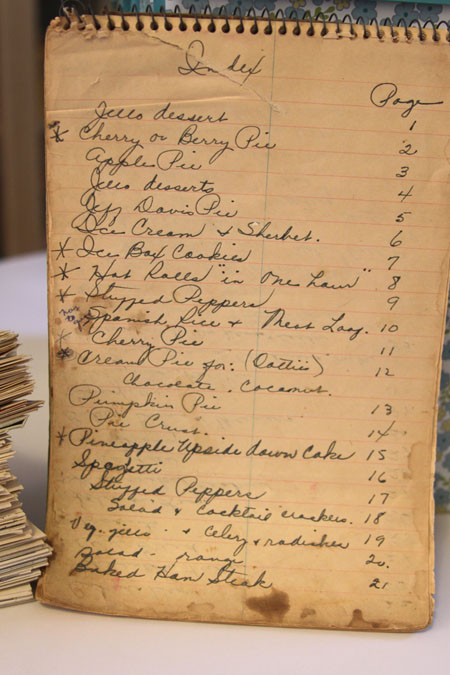 Index
Page
Jello dessert 1
* Cherry or Berry Pie 2
Apple Pie 3
Jello desserts 4
Jeff Davis Pie 5
Ice Cream & Sherbet. 6
* Ice Box Cookies 7
* Hot Rolls "in One hour" 8
* Stuffed Peppers 9
Spanish Rice & Meat Loaf. 10
Cherry Pie 11
* Cream Pie for: (Dottie) 12
Chocolate - Cocoanut.
Pumpkin Pie 13
Pie Crust. 14
* Pineapple Upside down Cake 15
Spagetti 16
Stuffed Peppers 17
Salad & Cocktail crackers. 18
Veg. jello - & Celery & radishes 19
Salad - 20.
Baked Ham Steak 21